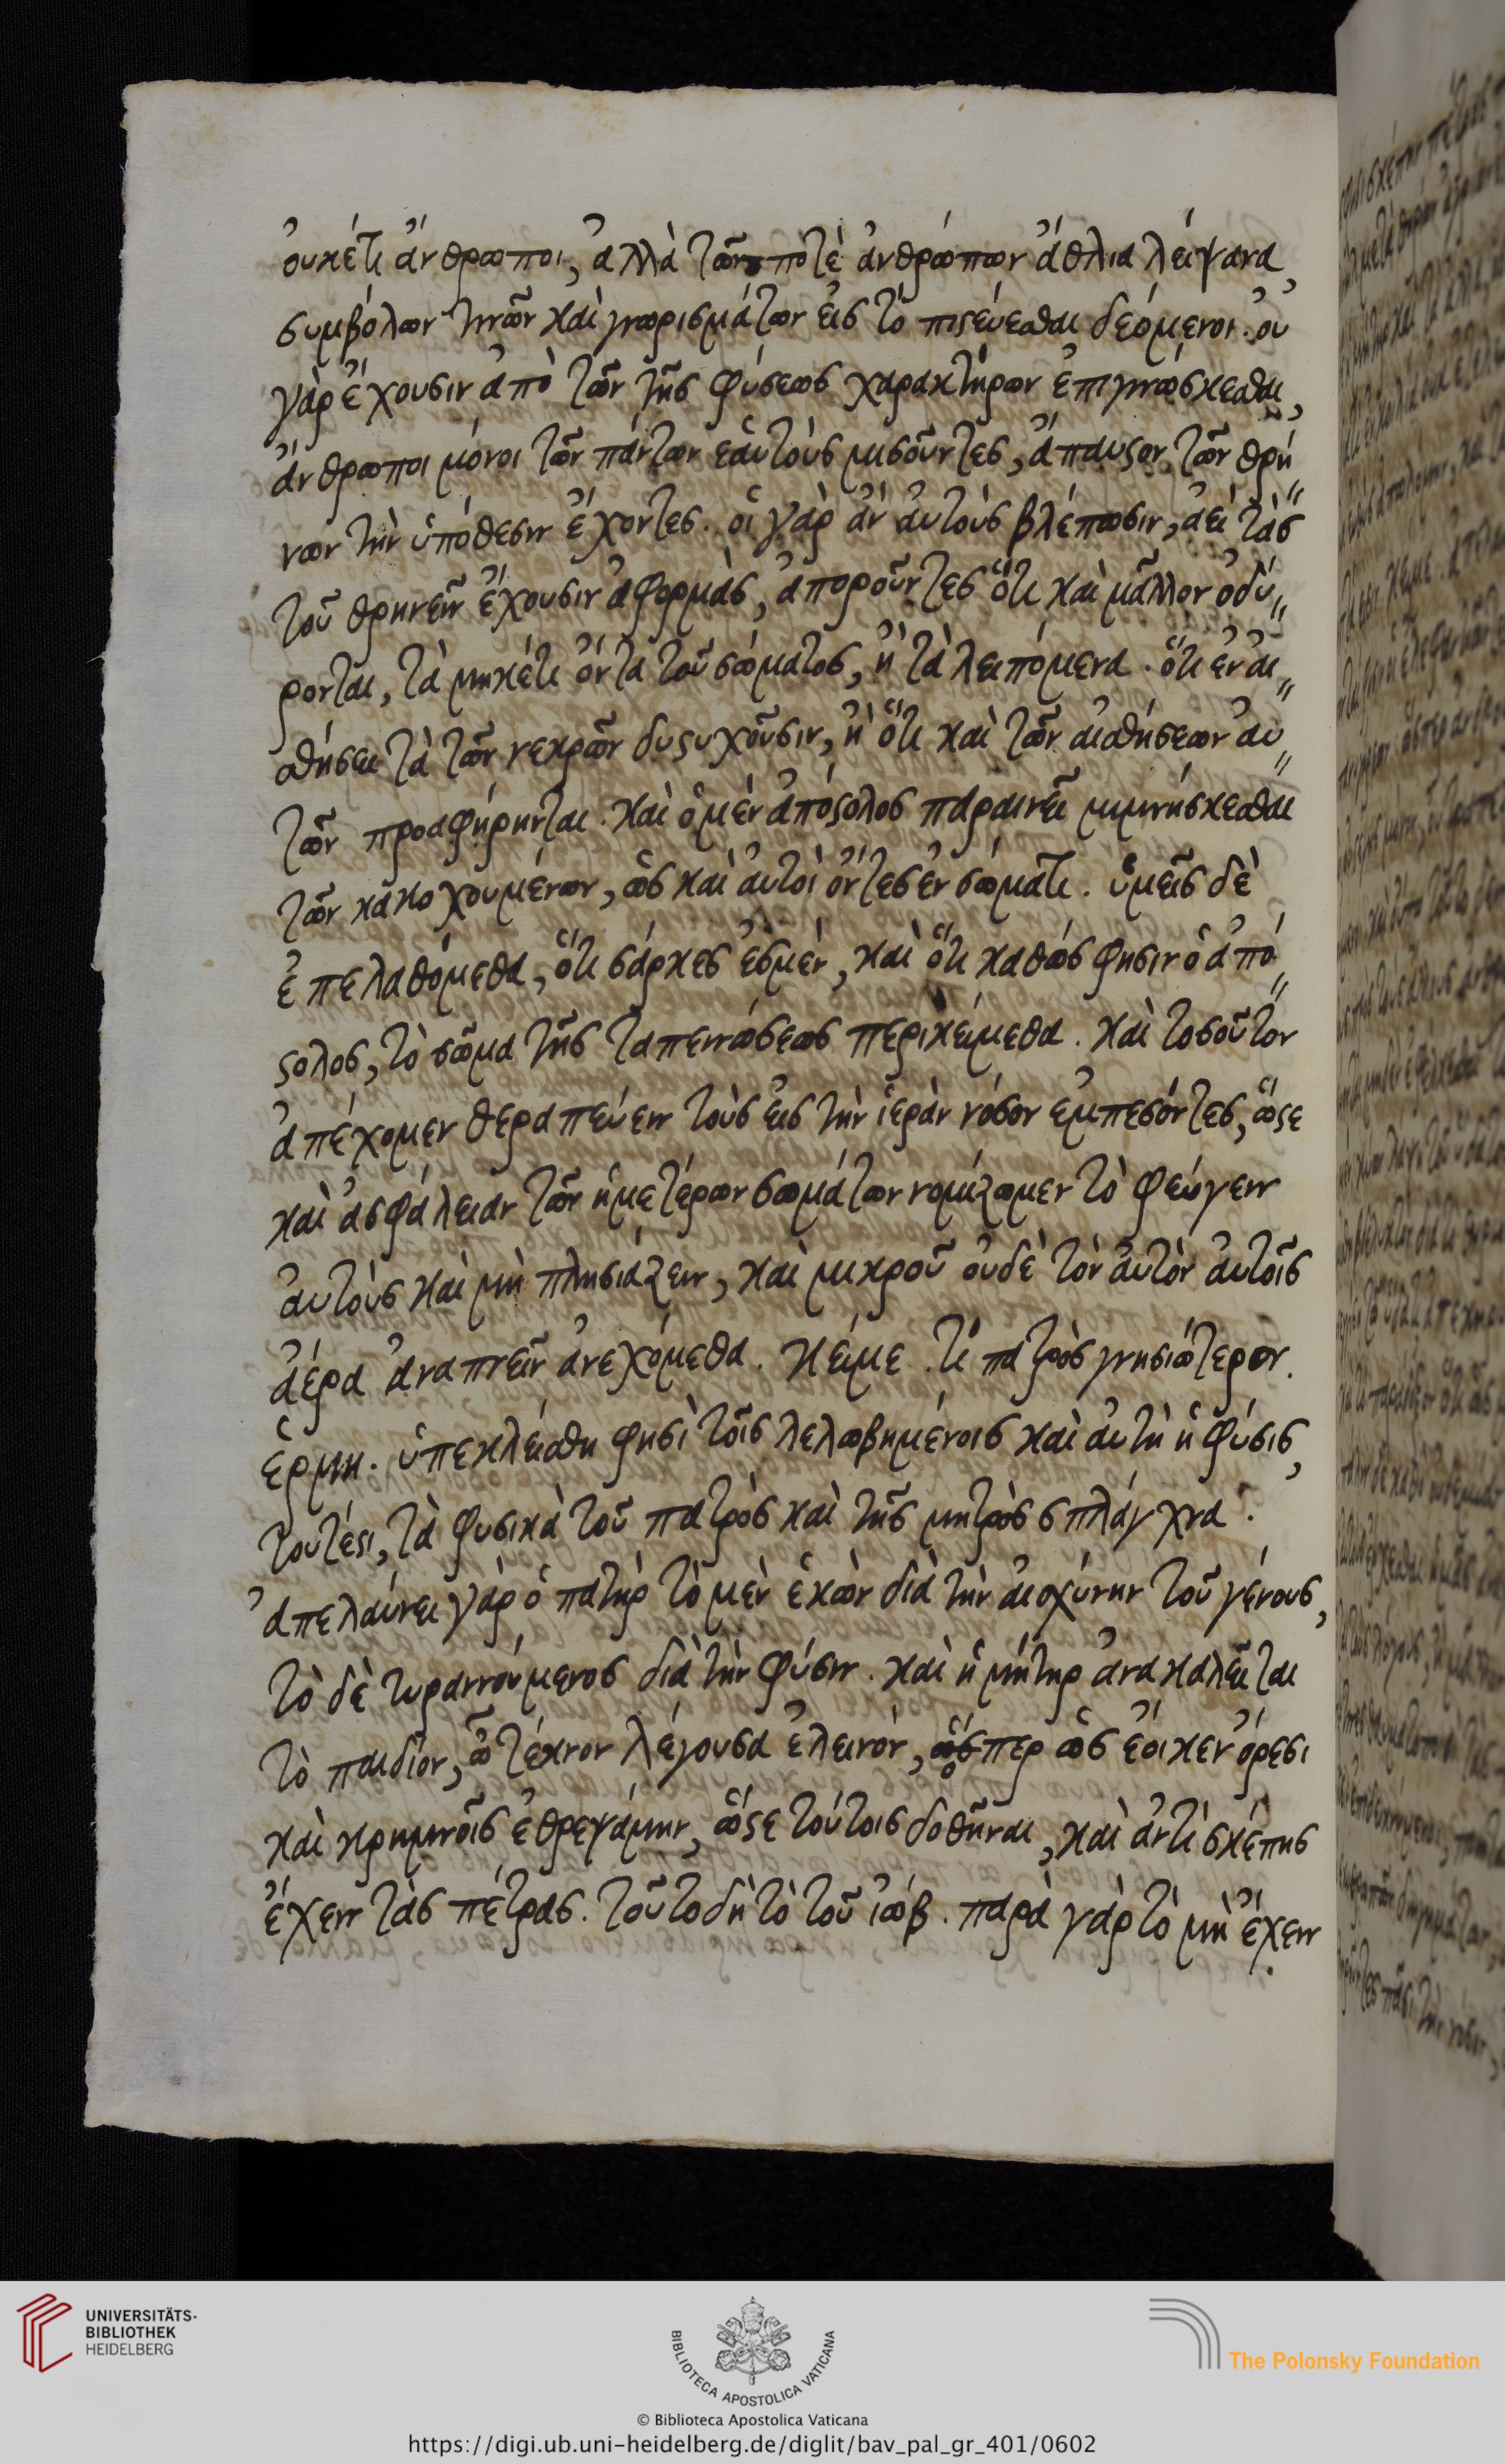 ὀυκέτι ἄνθρωποι, ἀλλὰ τῶν ποτὲ ἀνθρώπων ἄθλια λείψανα,
συμβόλων τινῶν καὶ γνωρισμάτων εἰς τὸ πιστεύεσθαι δεόμενοι. ὀυ
γὰρ ἔχουσιν ἀπὸ τῶν τῆς φύσεως χαρακτήρων ἐπιγινώσκεσθαι,
ἄνθρωποι μόνοι τῶν πάντων ἑαυτοὺς μισοῦντες, ἄπαυστον τῶν θρή
νων τὴν ὑπόθεσιν ἔχοντες. οἱ γὰρ ἂν ἀυτοὺς βλέπωσιν, ἀεὶ τὰς
τοῦ θρηνεῖν ἔχουσιν ἀφορμὰς, ἀποροῦντες ὅτι καὶ μᾶλλον ὀδύ
ρονται, τὰ μηκέτι ὄντα τοῦ σώματος, ἢ τὰ λειπόμενα. ὅτι ἐν ἀι
σθήσει τὰ τῶν νεκρῶν δυστυχοῦσιν, ἢ ὅτι καὶ τῶν αἰσθήσεων ἀυ
τῶν προαφήρηνται. καὶ ὁ μὲν ἀπόστολος παραινεῖ μιμνήσκεσθαι
τῶν κακοχουμένων, ὡς καὶ ἀυτοὶ ὄντες ἐν σώματι. ὑμεῖς δὲ
ἐπελαθόμεθα, ὅτι σάρκες ἐσμὲν, καὶ ὅτι καθώς φησιν ὁ ἀπό
στολος, τὸ σῶμα τῆς ταπεινώσεως περικείμεθα. καὶ τοσοῦτον
ἀπέχομεν θεραπεύειν τοὺς εἰς τὴν ἱερὰν νόσον ἐμπεσόντες, ὥστε
καὶ ἀσφάλειαν τῶν ἡμετέρων σωμάτων νομίζωμεν τὸ φεύγειν
ἀυτοὺς καὶ μὴ πλησιάζειν, καὶ μικροῦ ὀυδὲ τὸν ἀυτὸν ἀυτοῖς
ἀέρα ἀναπνεῖν ἀνεχόμεθα. κείμε. τί πατρὸς γνησιώτερον.
ἑρμη. ὑπεκλείσθη φησὶ τοῖς λελωβημένοις καὶ ἀυτὴ ἡ φύσις,
τουτέστι, τὰ φυσικὰ τοῦ πατρὸς καὶ τῆς μητρὸς σπλάγχνα.
ἀπελαύνει γὰρ ὁ πατὴρ τὸ μὲν ἑκὼν διὰ τὴν αἰσχύνην τοῦ γένους,
τὸ δὲ τυραννούμενος διὰ τὴν φύσιν. καὶ ἡ μήτηρ ἀνακαλεῖται
τὸ παιδίον, ὦ τέκνον λέγουσα ἐλεινόν, ὅσπερ ὡς ἔοικεν ὄρεσι
καὶ κρημνοῖς ἐθρεψάμην, ὥστε τούτοις δοθῆναι, καὶ ἀντὶ σκέπης
ἔχειν τὰς πέτρας. τοῦτο δὴ τὸ τοῦ ἰώβ. παρὰ γὰρ τὸ μὴ ἔχειν
UNIVERSITÄTS-
BIBLIOTHEK
HEIDELBERG
BIBLIOTECA APOSTOLICA VATICANA
The Polonsky Foundation
© Biblioteca Apostolica Vaticana
https://digi.ub.uni-heidelberg.de/diglit/bav_pal_gr_401/0602